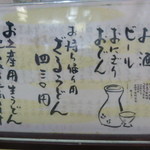 お酒
ビール
おにぎり
おでん
お持ち帰り用
ざるうどん
四三〇円
お土産用生うどん